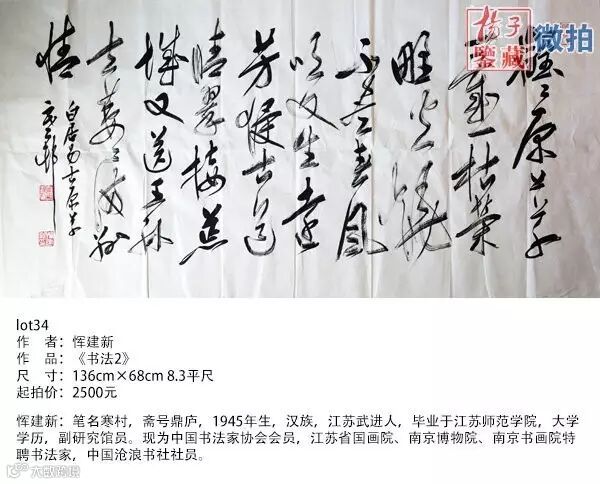 揚子
鑒藏
微拍
離〻原上草
歲一枯榮
野火燒
不盡春風
吹又生遠
芳侵古道
晴翠接荒
城又送王孫
去萋〻滿別
情
白居易古原草
寒邨
lot34
作 者：恽建新
作 品：《书法2》
尺 寸：136cm×68cm 8.3平尺
起拍价：2500元
恽建新：笔名寒村，斋号鼎庐，1945年生，汉族，江苏武进人，毕业于江苏师范学院，大学
学历，副研究馆员。现为中国书法家协会会员，江苏省国画院、南京博物院、南京书画院特
聘书法家，中国沧浪书社社员。
大数跨境